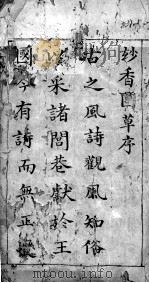 纱香圃草序
古之風詩觀風知俗
采諸閭巷獻於王
國今有詩而無正